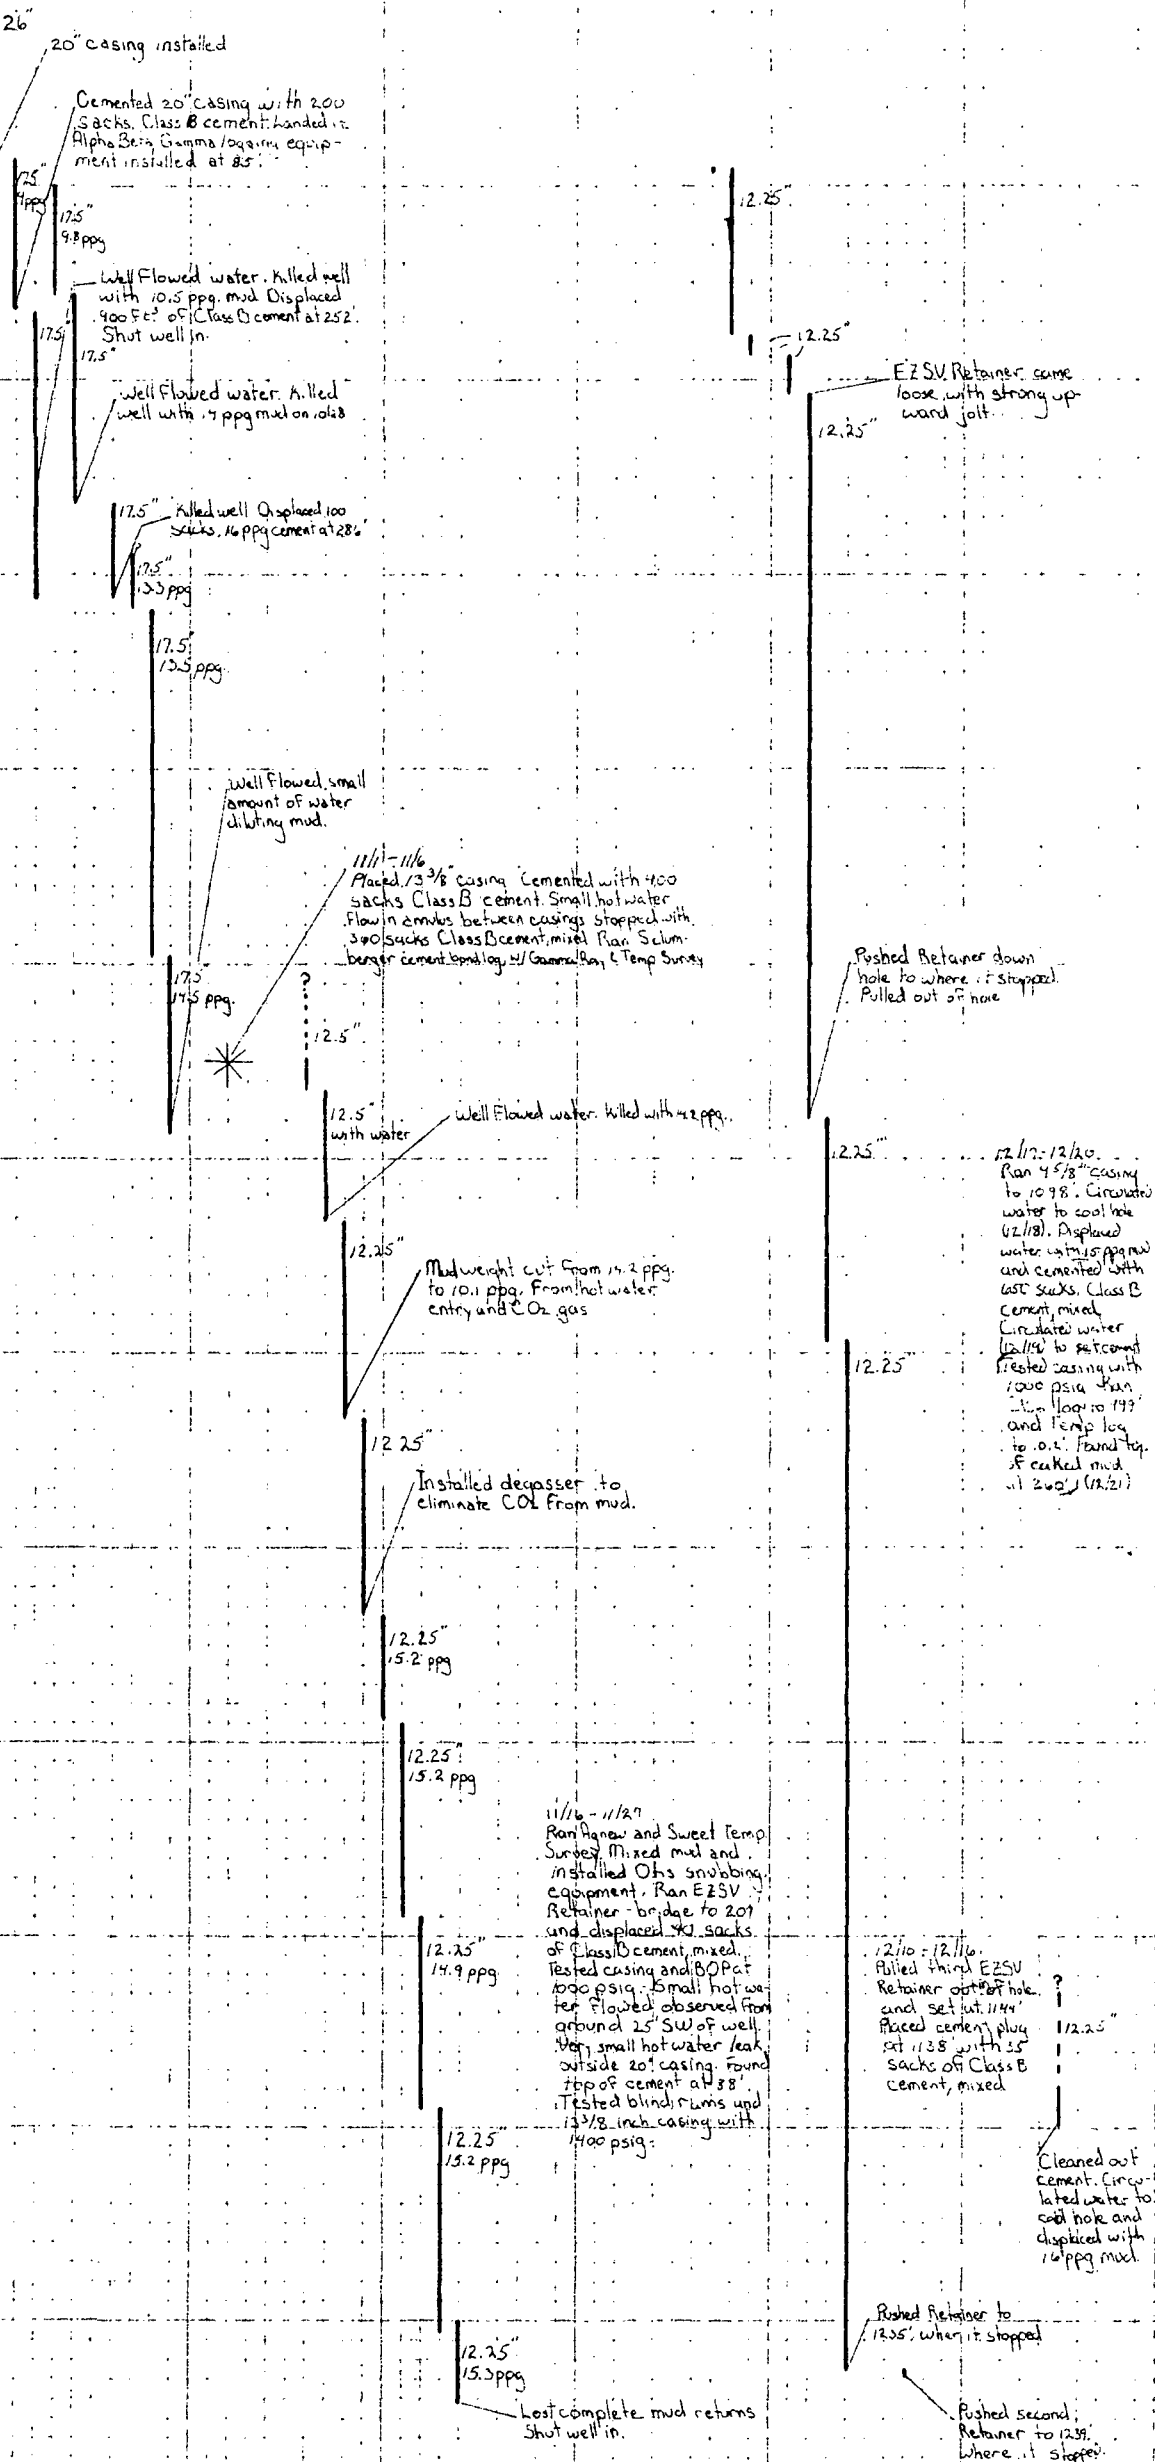 26"
20" casing installed
Cemented 20" casing with 200
sacks. Class B cement. Landed
Alpha Beta, Gamma logging equip-
ment installed at 85'.
17.5"
9.8 ppg
Well Flowed water. Killed well
with 10.5 ppg. mud Displaced
400 Ft³ of Class B cement at 252'.
Shut well in.
17.5
17.5"
Well Flowed water. Killed
well with ppg mud on
17.5" Killed well Displaced 100
sacks. 16 ppg cement at 286'
17.5"
13.3 ppg
17.5
13.5 ppg.
Well Flowed small
amount of water
diluting mud.
11/1 - 11/6
Placed 13 3/8" casing Cemented with 400
sacks Class B cement. Small hot water
flow in annulus between casings stopped with
300 sacks Class B cement, mixed Ran Schlum-
berger cement bond log w/ Gamma Ray, & Temp Survey
17.5
14.5 ppg.
?
12.5"
12.5"
with water
Well Flowed water. Killed with ppg.
12.25"
Mud weight cut from 14.2 ppg.
to 10.1 ppg. From hot water
entry and CO2 gas
12.25"
Installed degasser to
eliminate CO2 from mud.
12.25"
15.2 ppg
12.25"
15.2 ppg
11/16 - 11/27
Ran Agnew and Sweet Temp
Survey. Mixed mud and
installed Otis snubbing
equipment. Ran EZSV
Retainer - bridge to 207
and displaced 40 sacks
of Class B cement, mixed.
Tested casing and BOP at
1000 psig. Small hot wa-
ter flowed observed from
ground 25' SW of well.
Very small hot water leak
outside 20" casing. Found
top of cement at 38'.
Tested blind rams and
13 3/8 inch casing with
1400 psig.
12.25"
14.9 ppg.
12.25"
15.2 ppg
12.25"
15.3 ppg
Lost complete mud returns
Shut well in.
12.25"
12.25"
EZSV Retainer came
loose, with strong up-
ward jolt.
12.25"
Pushed Retainer down
hole to where it stopped.
Pulled out of hole
12.25"
12/17-12/20
Ran 9 5/8" casing
to 1098'. Circulated
water to cool hole
(12/18). Displaced
water with 15 ppg mud
and cemented with
sacks. Class B
cement, mixed
Circulated water
(12/19) to set cement
Tested casing with
1000 psig Ran
log to
and Temp log
to Found top
of caked mud
at 260' (12/21)
12.25"
12/10 - 12/16
Pulled third EZSV
Retainer out of hole
and set at 1144'
Placed cement plug
at 1138' with 35
sacks of Class B
cement, mixed
?
12.25"
Cleaned out
cement. Circu-
lated water to
cool hole and
displaced with
16 ppg mud.
Pushed Retainer to
1235', when it stopped
Pushed second
Retainer to 1239'.
Where it stopped.